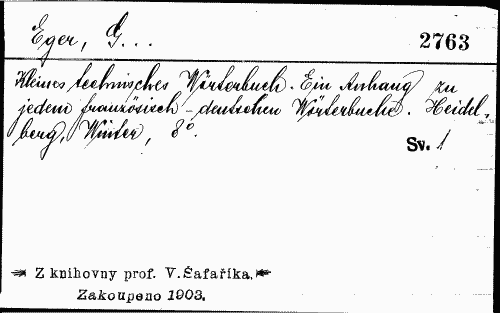 Eger, G...
2763
Kleines technisches Wörterbuch. Ein Anhang zu
jedem französisch-deutschen Wörterbuche. Heidel-
berg, Winter, 8°.
Sv. 1
Z knihovny prof. V. Šafaříka.
Zakoupeno 1903.